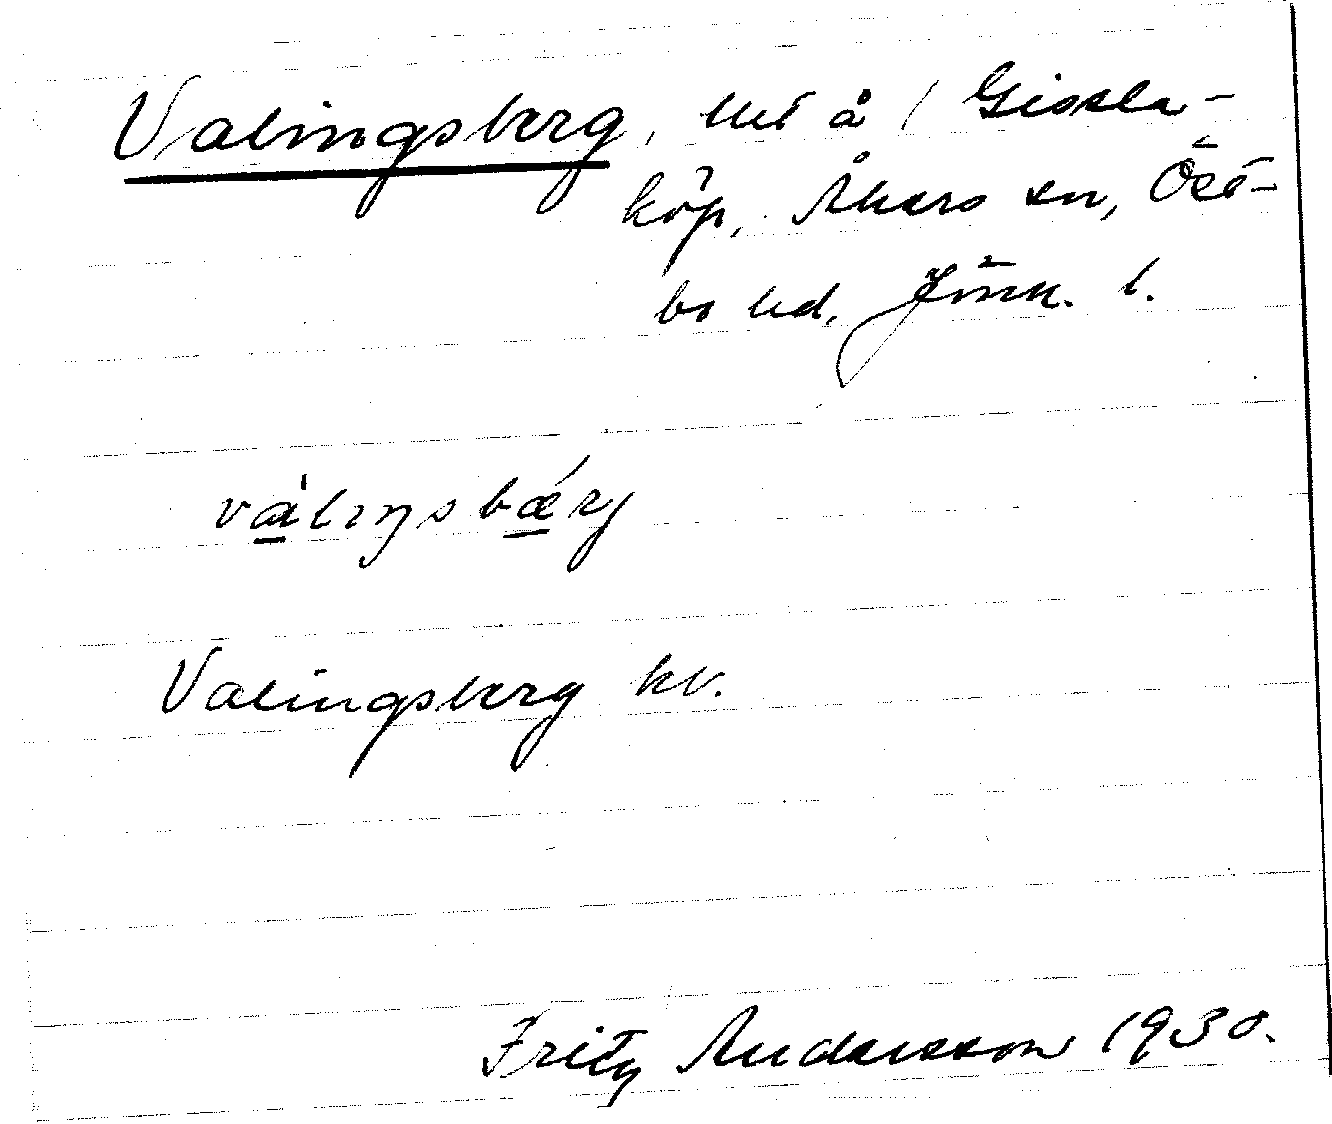 Valingsberg, lht å 1 Gissla-
köp, Åkers sn, Öst-
bo hd, Jönk. l.
vàlıŋsbǽrg
Valingsberg kv.
Fritz Andersson 1930.